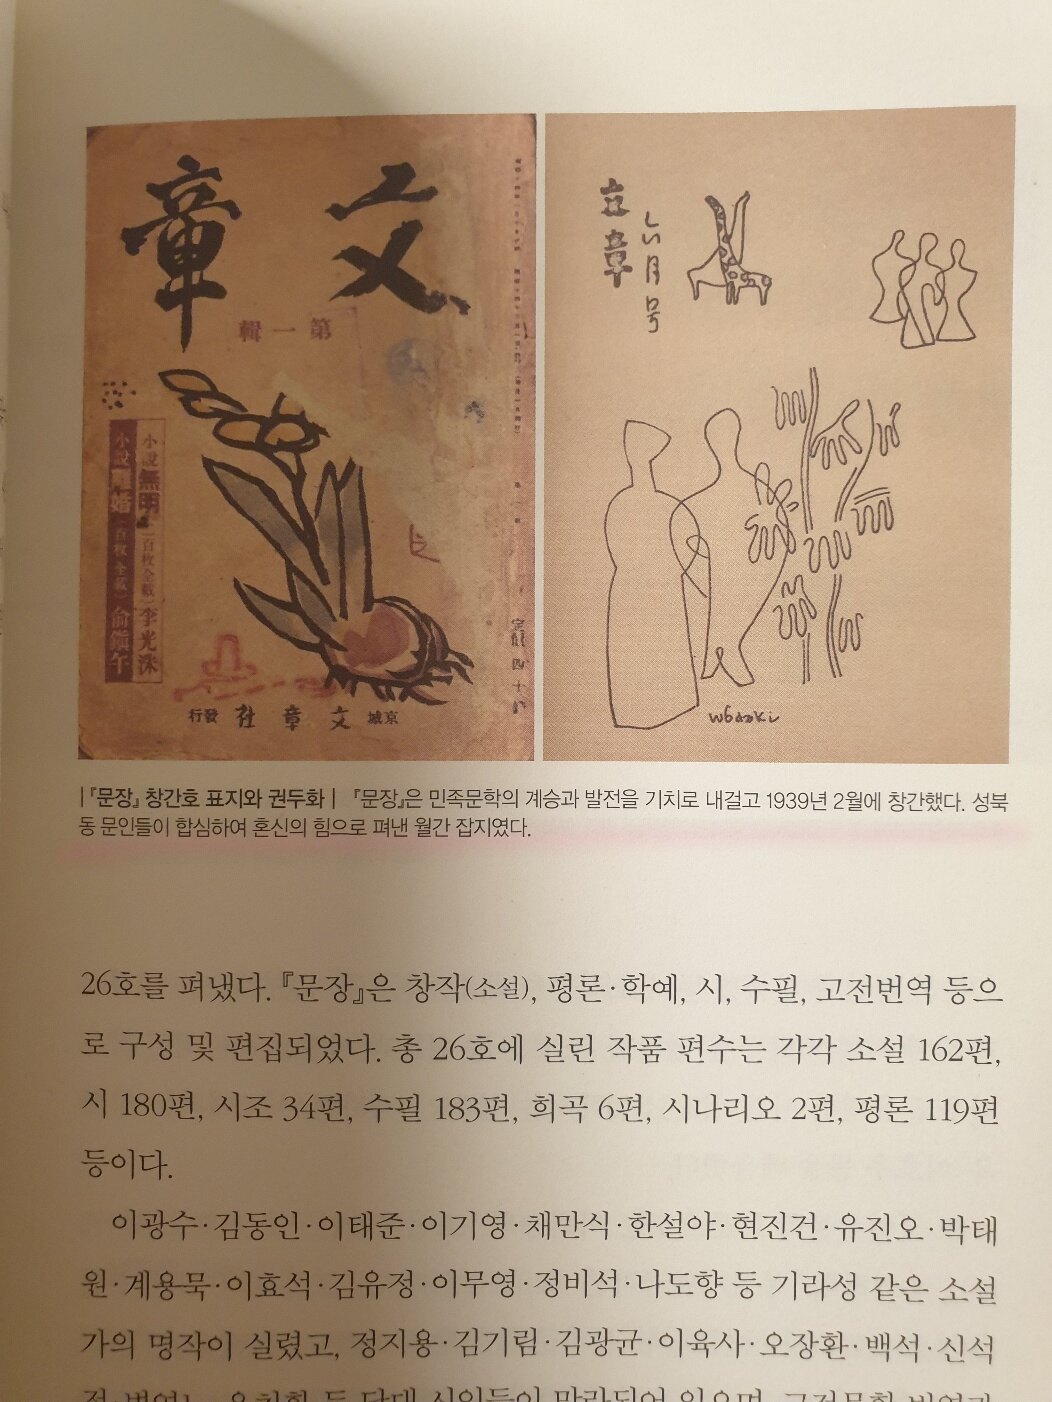 文章
第一輯
小說 無明 (百枚全載) 李光洙
小說 離婚 (百枚全載) 俞鎭午
定價 四十
京城 文章社 發行
文章
月号
|『문장』 창간호 표지와 권두화| 『문장』은 민족문학의 계승과 발전을 기치로 내걸고 1939년 2월에 창간했다. 성북
동 문인들이 합심하여 혼신의 힘으로 펴낸 월간 잡지였다.
26호를 펴냈다. 『문장』은 창작(소설), 평론·학예, 시, 수필, 고전번역 등으
로 구성 및 편집되었다. 총 26호에 실린 작품 편수는 각각 소설 162편,
시 180편, 시조 34편, 수필 183편, 희곡 6편, 시나리오 2편, 평론 119편
등이다.
이광수·김동인·이태준·이기영·채만식·한설야·현진건·유진오·박태
원·계용묵·이효석·김유정·이무영·정비석·나도향 등 기라성 같은 소설
가의 명작이 실렸고, 정지용·김기림·김광균·이육사·오장환·백석·신석